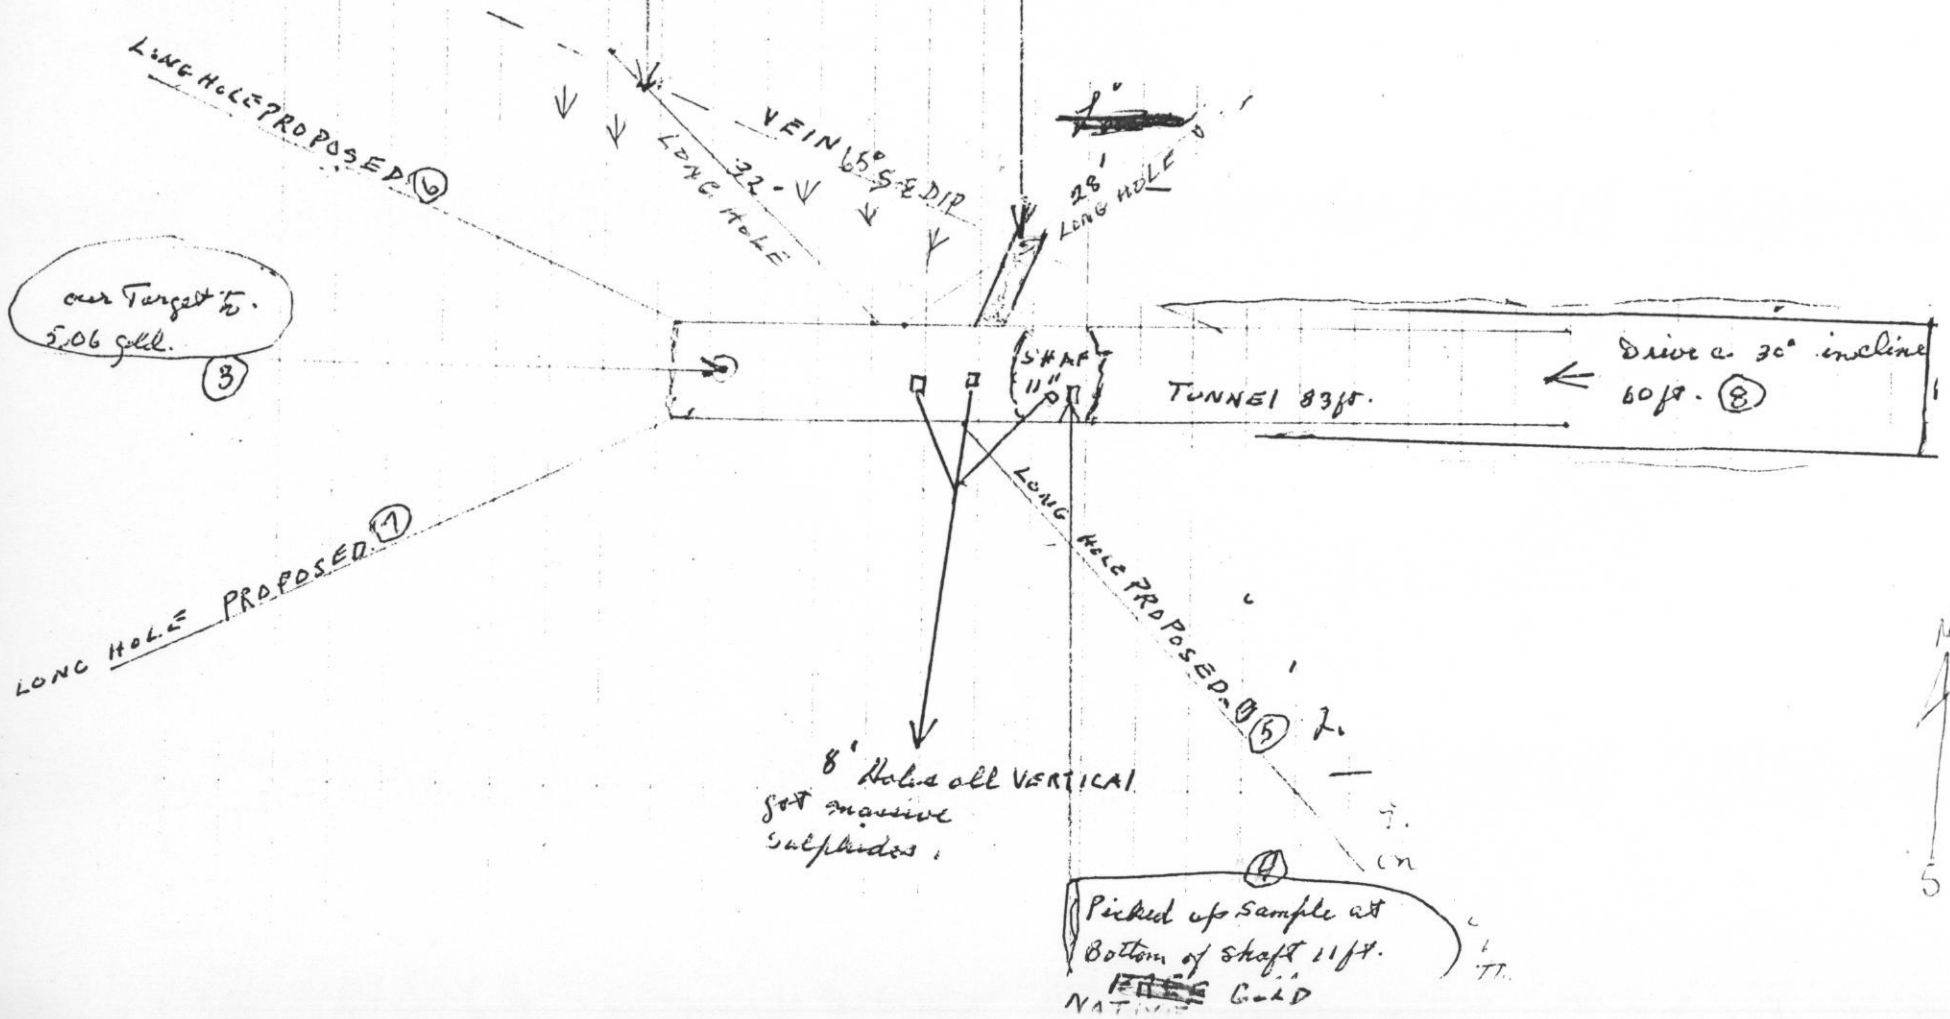 LONG HOLE PROPOSED 6
VEIN 65° SE DIP
32
LONG HOLE
28'
LONG HOLE
our Target
5.06 gold.
3
SHAF
11"
TUNNEL 83ft.
Drive a 30° incline
60 ft. 8
LONG HOLE PROPOSED 7
LONG HOLE PROPOSED 5
2.
8' Holes all VERTICAL
got massive
sulphides.
4
Picked up sample at
Bottom of shaft 11ft.
GOLD
NATIVE
N
S